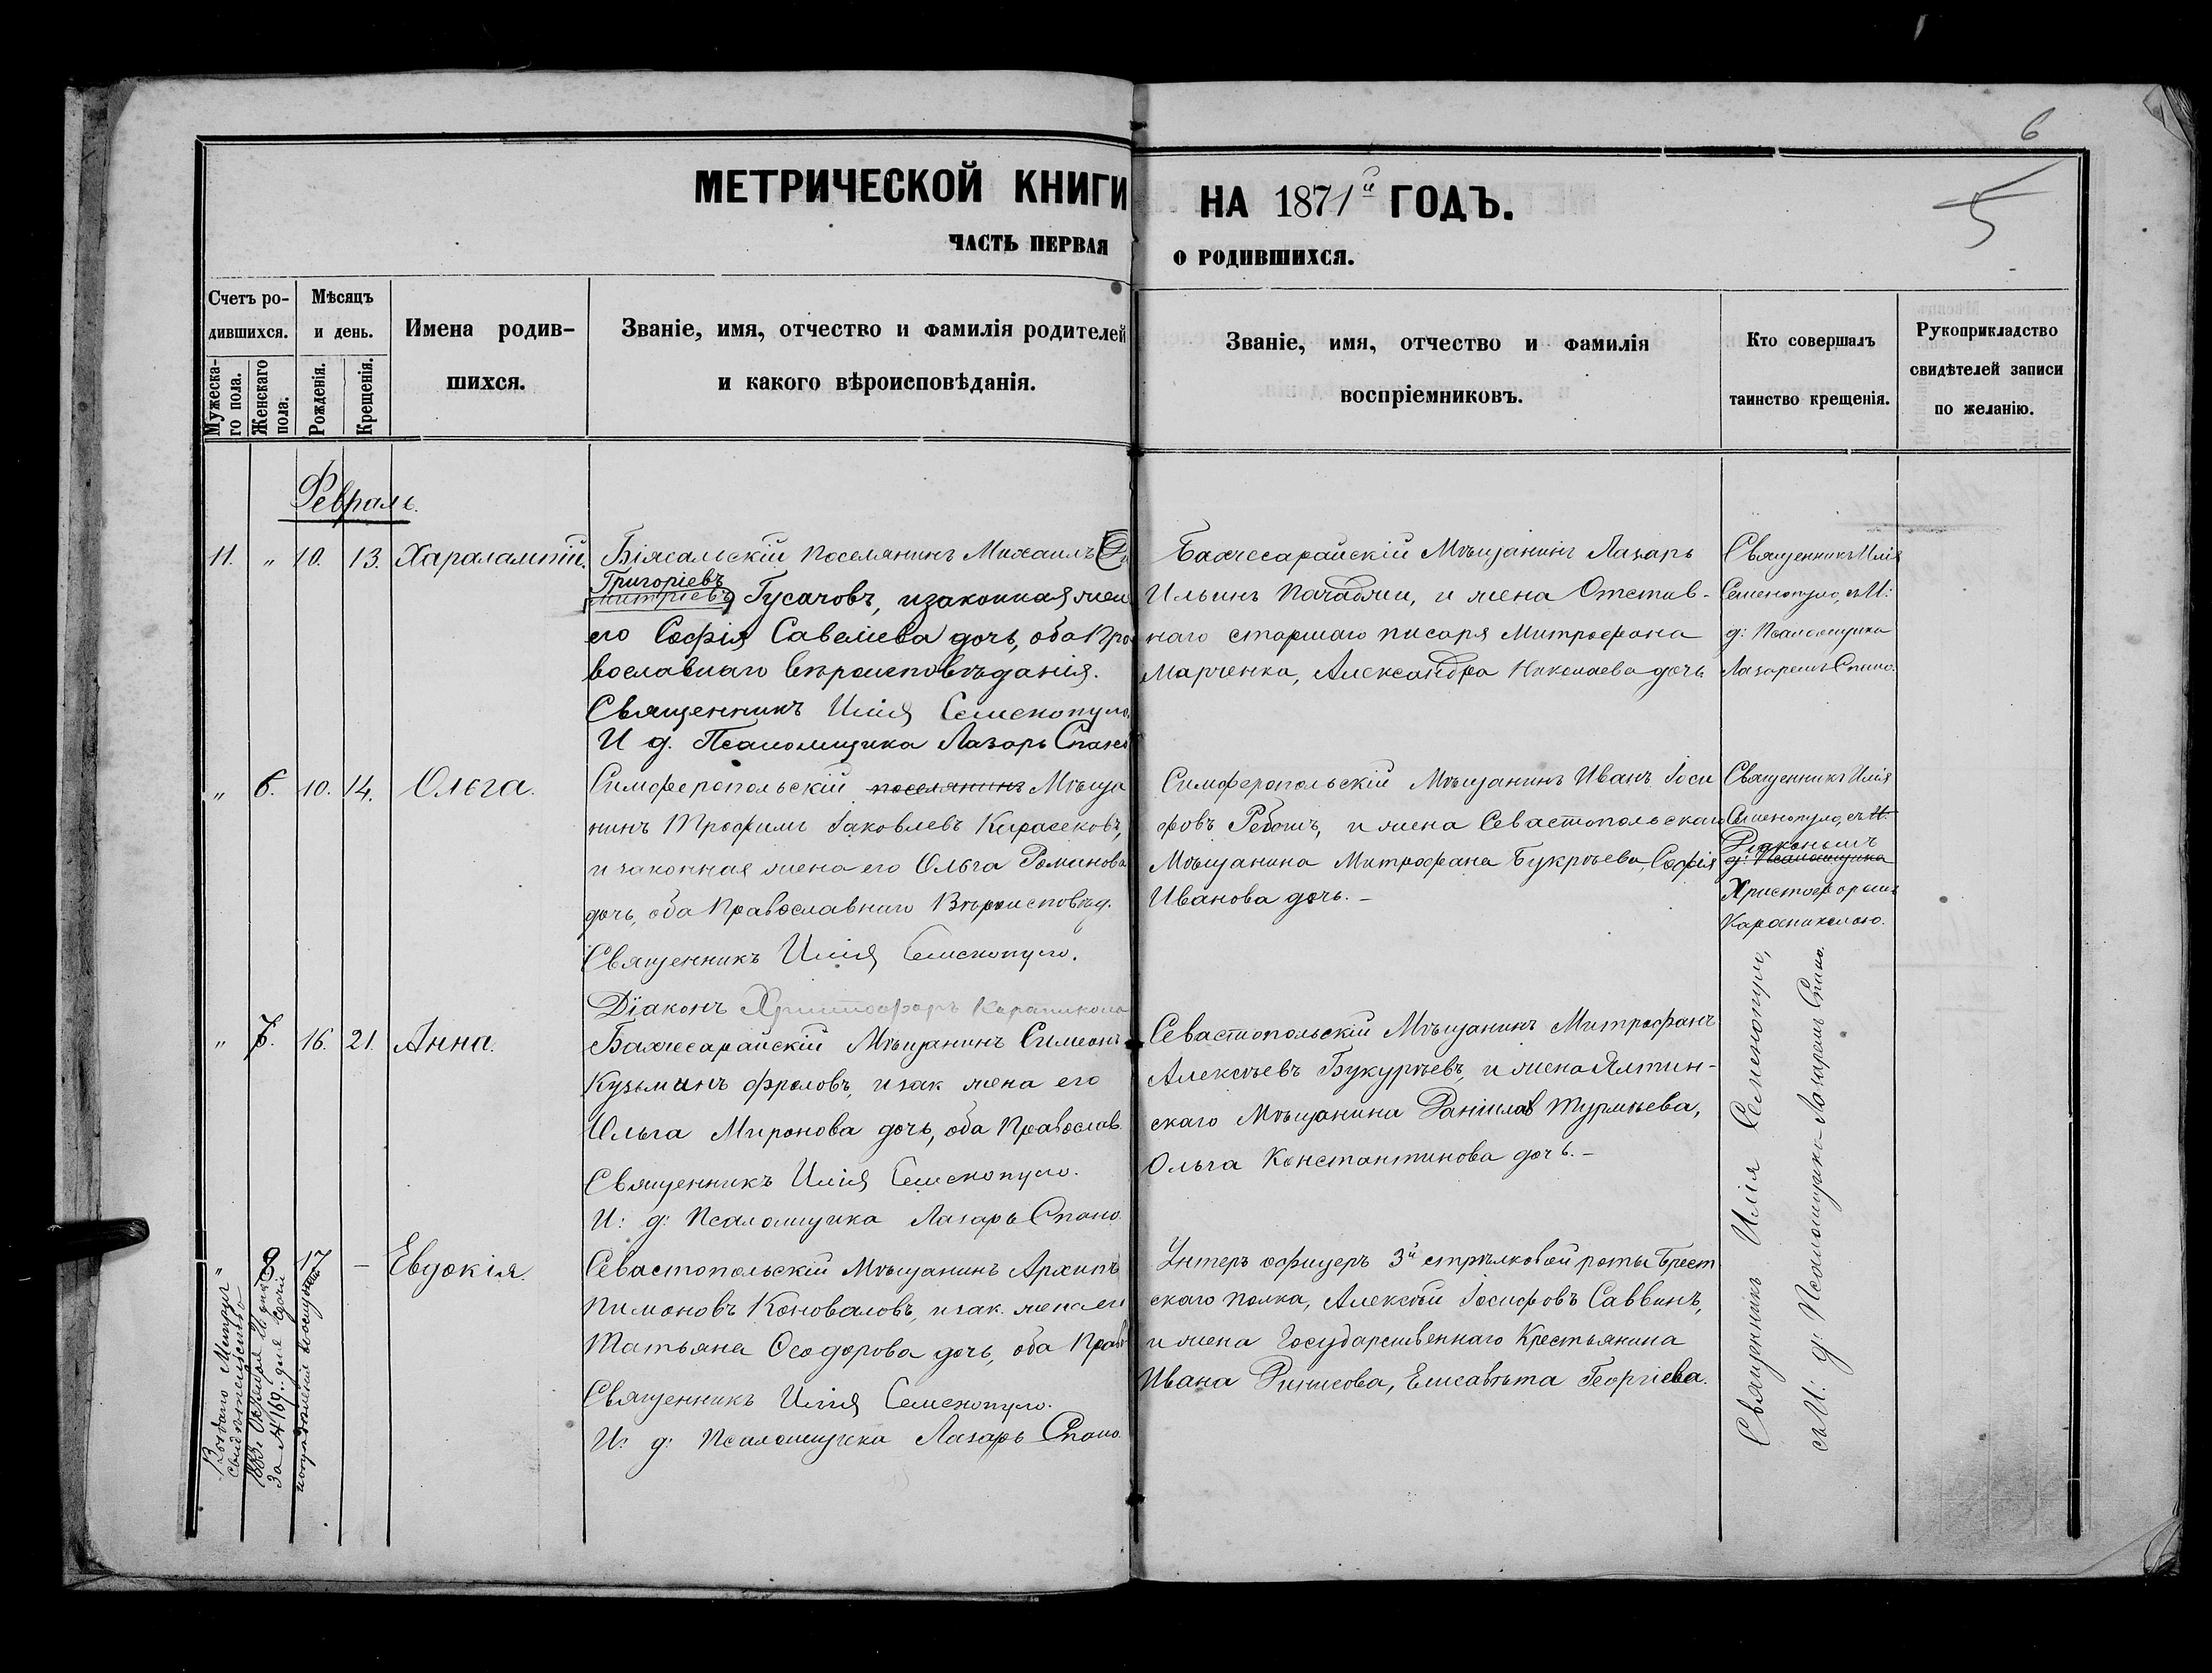 6
5
МЕТРИЧЕСКОЙ КНИГИ НА 1871й ГОДЪ.
ЧАСТЬ ПЕРВАЯ О РОДИВШИХСЯ.
Счетъ ро-
дившихся.
Мужеска-
го пола.
Женскаго
пола.
Мѣсяцъ
и день.
Рожденія.
Крещенія.
Имена родив-
шихся.
Званіе, имя, отчество и фамилія родителей
и какого вѣроисповѣданія.
Званіе, имя, отчество и фамилія
воспріемниковъ.
Кто совершалъ
таинство крещенія.
Рукоприкладство
свидѣтелей записи
по желанію.
Февраль.
11. " 10. 13. Харалампій.
Біясальскій поселянинъ Михаилъ Ди
Григоріевъ
митріевъ Гусачовъ, и законная жен
его Софія Савеліева дочь, оба Пра
вославнаго вѣроисповѣданія.
Священникъ Илія Семенопуло.
И д. Псаломщика Лазарь Спано
Бахчесарайскій Мѣщанинъ Лазарь
Ильинъ Пачаджи, и жена Отстав-
наго старшаго писаря Митрофана
Марченка, Александра Николаева дочь
Священникъ Илія
Семенопуло, съ И:
д: Псаломщика
Лазаремъ Спано.
" 6. 10. 14. Ольга.
Симферопольскій поселянинъ Мѣща
нинъ Трофимъ Іаковлевъ
и законная жена его Ольга Романова
дочь, оба Православнаго Вѣроисповѣд.
Священникъ Илія Семенопуло.
Діаконъ Христофоръ
Симферопольскій Мѣщанинъ Иванъ Іоси
фовъ и жена Севастопольскаго
Мѣщанина Митрофана Букрѣева, Софія
Иванова дочь. -
Священникъ Илія
Семенопуло, съ И:
Діакономъ
д: Псаломщика
Христофоромъ
" 7. 16. 21. Анна.
Бахчесарайскій Мѣщанинъ Симеонъ
Кузьминъ Фроловъ, и зак жена его
Ольга Миронова дочь, оба Православ.
Священникъ Илія Семенопуло.
И: д: Псаломщика Лазарь Спано
Севастопольскій Мѣщанинъ Митрофанъ
Алексѣевъ Букурѣевъ, и жена Ялтин-
скаго Мѣщанина Даніила
Ольга Константинова дочь. -
" 8 17 - Евдокія.
Севастопольскій Мѣщанинъ Архипъ
Пимоновъ Коноваловъ, и зак. жена его
Татьяна Ѳеодорова дочь, оба Прав
Священникъ Илія Семенопуло.
И: д: Псаломщика Лазарь Спано
Унтеръ офицеръ 3й стрѣлковой роты Брест
скаго полка, Алексѣй Іосифовъ Саввинъ,
и жена Государственнаго Крестьянина
Ивана Елисавѣта Георгіева.
Священникъ Илія Семенопуло,
съ И: д: Псаломщика Лазаремъ Спано.
свидѣтельство
за № 169